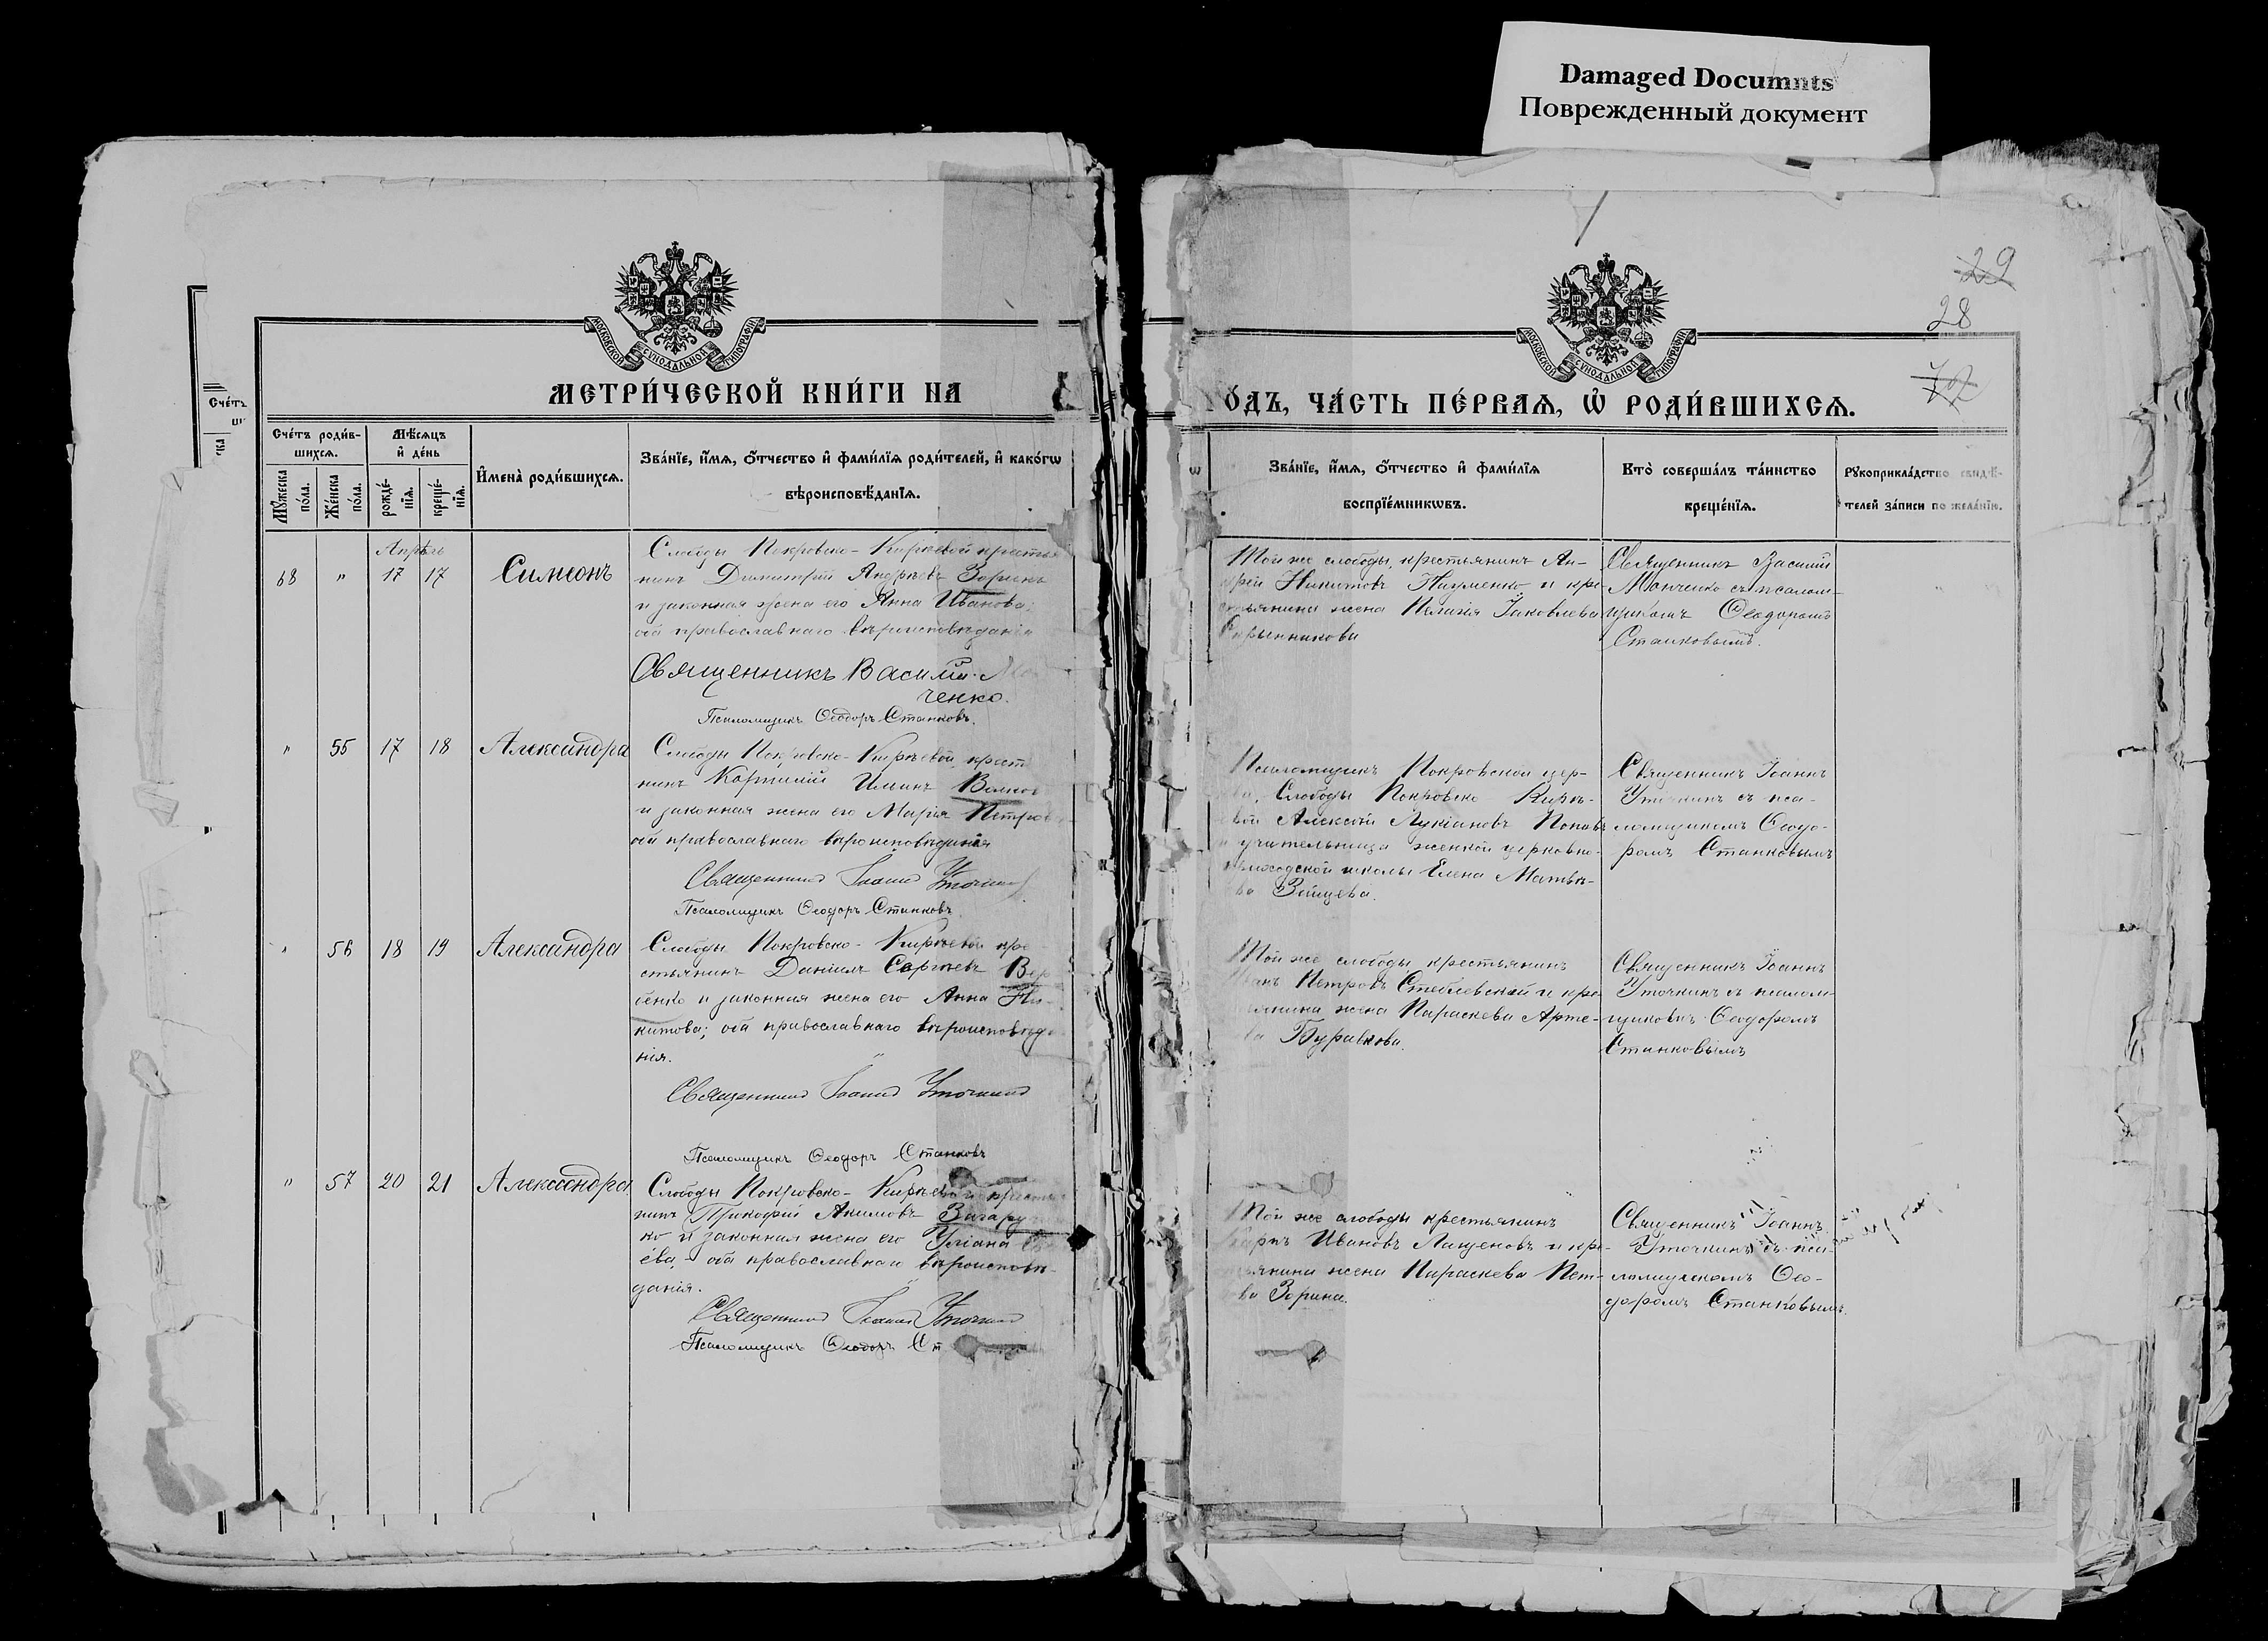 Damaged Documnts
Поврежденный документ
29
28
72
МОСКОВСКОЙ СУНОДАЛЬНОЙ ТИПОГРАФІИ
МОСКОВСКОЙ СУНОДАЛЬНОЙ ТИПОГРАФІИ
МЕТРИ́ЧЕСКОЙ КНИ́ГИ НА
О́ДЪ, ЧА́СТЬ ПЕ́РВАѦ, Ѡ҆ РОДИ́ВШИХСѦ.
Сче́тъ роди́в-
шихсѧ.
Мѣ́сѧцъ
и҆ де́нь
Мꙋ́жеска по́ла.
Же́нска по́ла.
рожде́-
нїѧ.
креще́-
нїѧ.
И҆мена̀ роди́вшихсѧ.
Зва́нїе, и҆́мѧ, ѻ҆́тчество и҆ фами́лїѧ роди́телей, и҆ како́гѡ
вѣроисповѣ́данїѧ.
Зва́нїе, и҆́мѧ, ѻ҆́тчество и҆ фами́лїѧ
воспрїе́мникѡвъ.
Кто̀ соверша́лъ та́инство
креще́нїѧ.
Рꙋкоприкла́дство свидѣ́-
телей за́писи по жела́нїю.
Апрѣль
68 " 17 17 Симеонъ
Слободы Покровско-Кирѣевой крестья
нинъ Димитрій Андреевъ Зоринъ
и законная жена его Анна Иванова;
оба православнаго вѣроисповѣданія
Священникъ Василій
ченко.
Псаломщикъ Ѳеодоръ Станковъ.
Той же слободы, крестьянинъ Ан-
дрей Никитовъ Науменко и кре
стьянина жена Пелагія Іаковлева
Священникъ Василій
Манченко съ псалом-
щикомъ Ѳеодоромъ
Станковымъ.
" 55 17 18 Александра
Слободы Покровско-Кирѣевой, крест
нинъ Корнилій Ильинъ Волков
и законная жена его Марія Петров
оба православнаго вѣроисповѣданія
Священникъ Іоаннъ Уточкинъ
Псаломщикъ Ѳеодоръ Станковъ.
Псаломщикъ Покровской цер-
кви, Слободы Покровско-Кирѣ-
евой Алексѣй Лукіановъ Поповъ
и учительница женской церковно-
приходской школы Елена Матвѣ-
ева Зайцева.
Священникъ Іоаннъ
Уточкинъ съ пса-
ломщикомъ Ѳеодо-
ромъ Станковымъ
" 56 18 19 Александра
Слободы Покровско-Кирѣевой кре
стьянинъ Даніилъ Сергѣевъ Вер
бенко и законная жена его Анна Ни-
китова; оба православнаго вѣроисповѣда
нія.
Священникъ Іоаннъ Уточкинъ
Псаломщикъ Ѳеодоръ Станковъ
Той же слободы, крестьянинъ
Петровъ Стеблевскій и кре
стьянина жена Параскева Арте-
ва Буравкова.
Священникъ Іоаннъ
Уточкинъ съ псалом-
щикомъ Ѳеодоромъ
Станковымъ
" 57 20 21 Александра
Слободы Покровско-Кирѣевой крестья
нинъ Прокофій Акимовъ Загару
ко и законная жена его Уліана
ева, оба православнаго вѣроисповѣ-
данія.
Священникъ Іоаннъ Уточкинъ
Псаломщикъ Ѳеодоръ Ст
Той же слободы крестьянинъ
Ивановъ Лащеновъ и кре-
стьянина жена Параскева Пет-
ва Зорина.
Священникъ Іоаннъ
Уточкинъ съ пса-
ломщикомъ Ѳео-
доромъ Станковымъ.